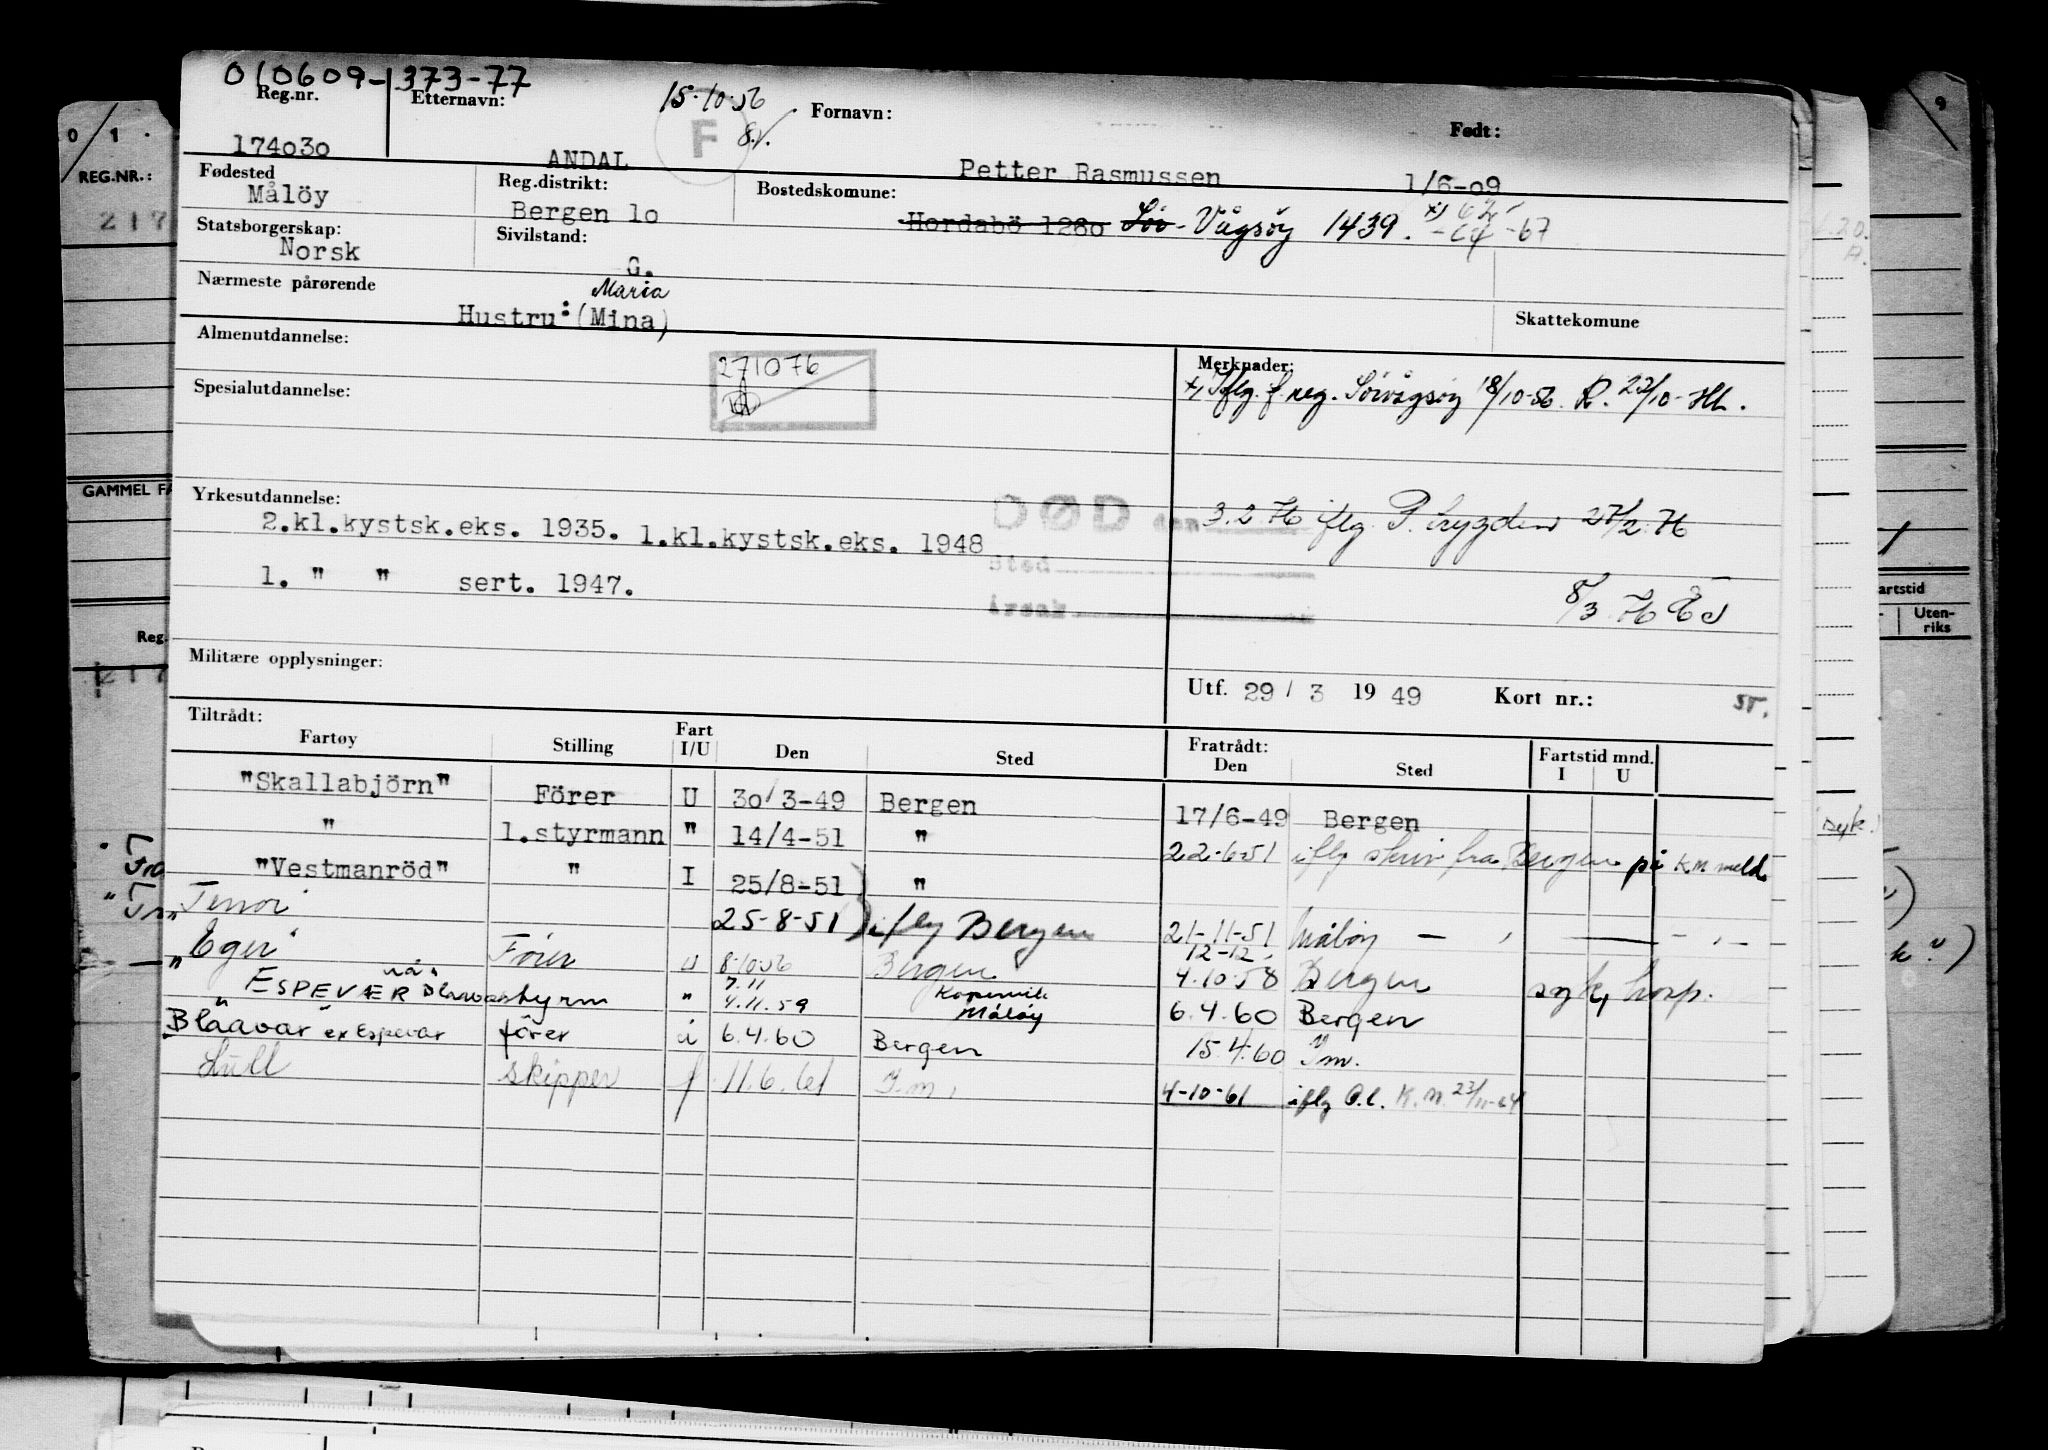 010609-373-77
Reg.nr. Etternavn: 15.10.56 Fornavn: Født:
F 8/.
174o3o ANDAL Petter Rasmussen 1/6-o9
Fødested Reg.distrikt: Bostedskomune:
Målöy Bergen 1o Hordabö 128o Söv-Vågsöy 1439. -64 -67
Statsborgerskap: Sivilstand:
Norsk G.
Nærmeste pårørende Maria
Hustru:(Mina) Skattekomune
Almenutdannelse: Merknader:
271076
x) Iflg. f. reg. Sörvågsöy 18/10-56. R. 23/10-
Spesialutdannelse:
Yrkesutdannelse:
2.kl.kystsk.eks. 1935. 1.kl.kystsk.eks. 1948
DØD den 3.2.76 iflg. trygden 27/2.76
Sted
1. " " sert. 1947.
Årsak 8/3 76
Militære opplysninger:
Utf. 29 / 3 19 49 Kort nr.:
Tiltrådt: Fratrådt: Fartstid mnd.
Fartøy Stilling Fart I/U Den Sted Den Sted I U
"Skallabjörn" Förer U 3o/3-49 Bergen 17/6-49 Bergen
" 1.styrmann " 14/4-51 " 22-6-51 iflg skriv fra Bergen på K.M meld.
"Vestmanröd" " I 25/8-51 "
25-8-51 iflg Bergen 21-11-51 Målöy
12-12
"Eger" Förer u 8.10.56 Bergen 4.10.58 Bergen syk, hosp.
7.11 Kopervik
ESPEVÆR nå styrm " 4.11.59 Målöy 6.4.60 Bergen
Blåavar ex Espevar förer u 6.4.60 Bergen 15.4.60 I.m.
skipper f 11.6.61 I.m. 4-10-61 iflg O.l. K.M. 23/11-64
0/1.
REG.NR.:
217
GAMMEL FA
Reg.
217
9
artstid
Uten-
riks
syk.